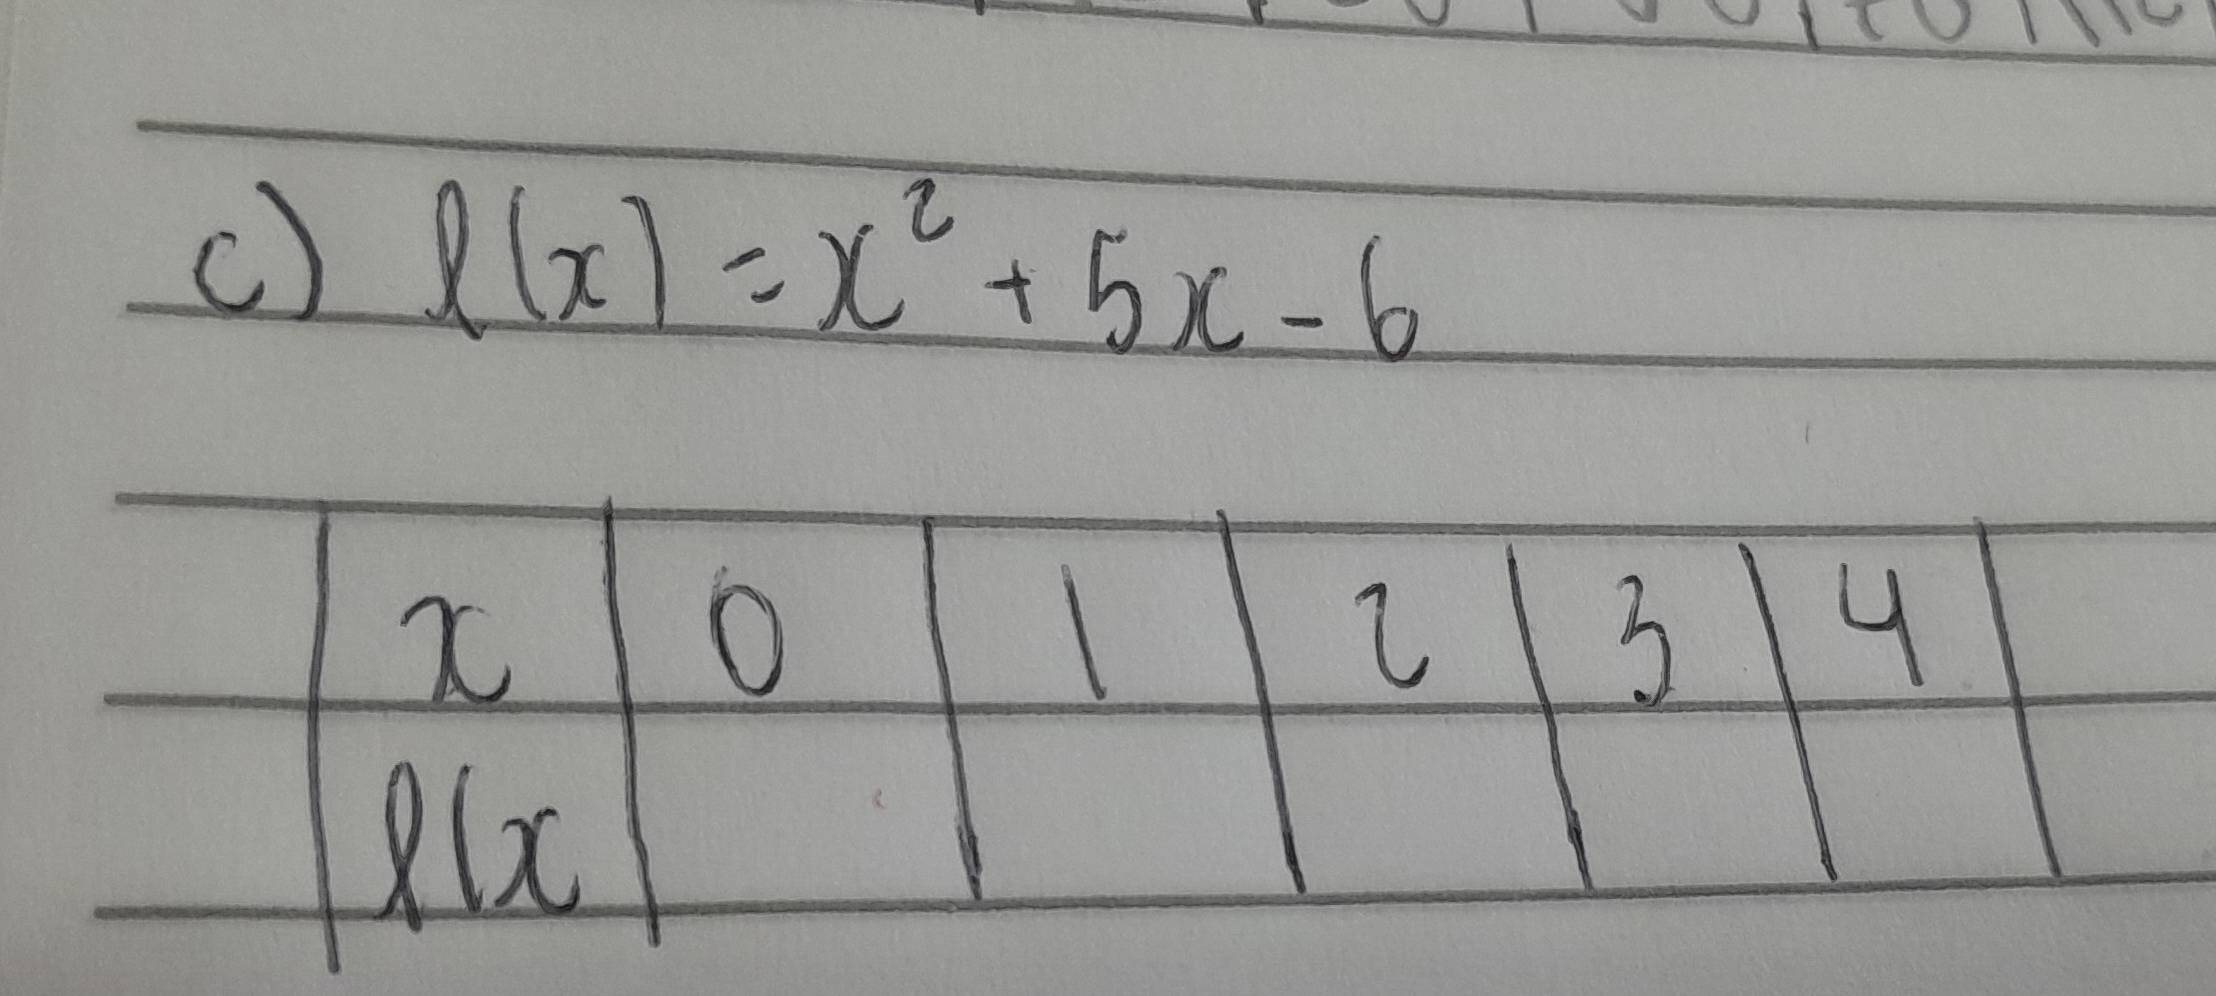 c) f(x) = x² + 5x - 6
x 0 1 2 3 4
f(x